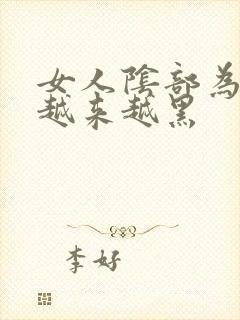 女人陰部為
越来越黑
李好